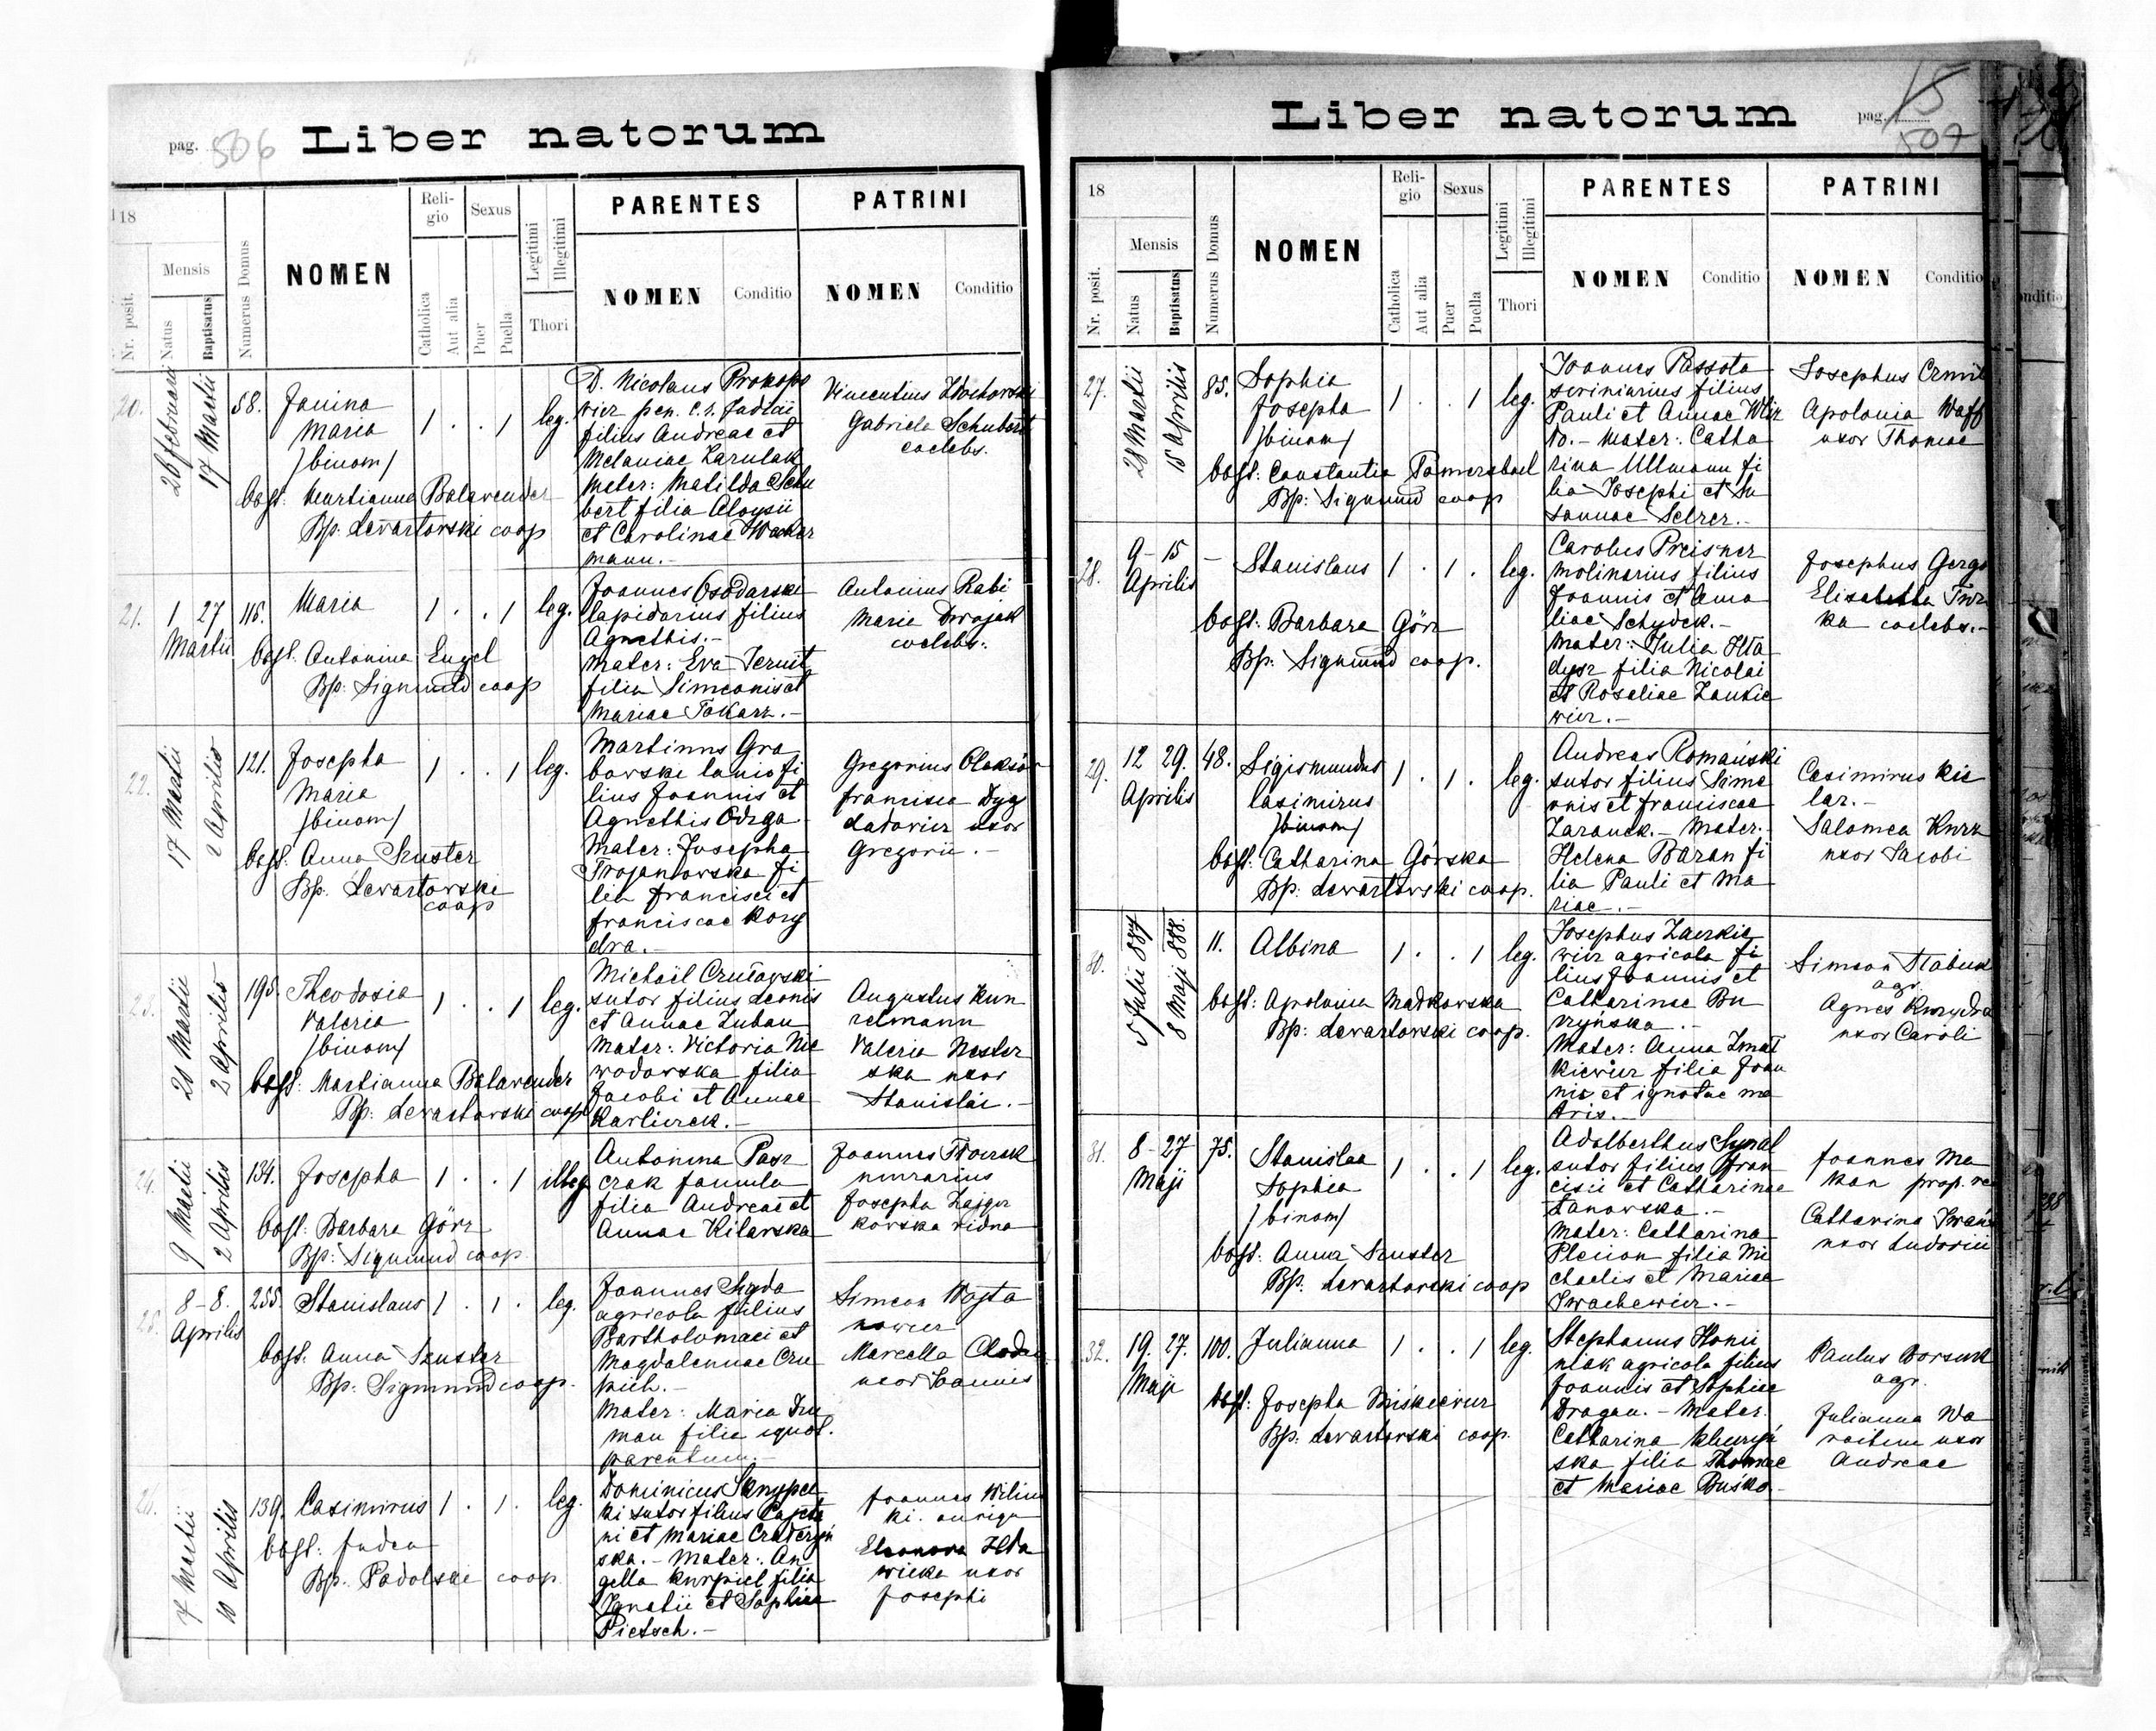 pag. 506 Liber natorum
18
Nr. posit.
Mensis
Natus
Baptisatus
Numerus Domus
NOMEN
Religio
Catholica
Aut alia
Sexus
Puer
Puella
Legitimi
Illegitimi
Thori
PARENTES
NOMEN
Conditio
PATRINI
NOMEN
Conditio
20.
26 februarii
17 Martii
58.
Janina
Maria
/binom/
1 . . 1 leg.
obst: Martianna Balavender
Bp: Levartovski coop
D. Nicolaus Prokopo
vicz pen. c. s. Judicii
filius Andreae et
Melaniae Karulak
Mater: Matilda Schu
bert filia Aloysii
et Carolinae Wacker
mann.-
Vincentius
Gabriela Schubert
coelebs.
21.
1 27
Martii
115.
Maria
1 . . 1 leg.
obst. Antonina Engel
Bp: Sigmund coop
Joannes
lapidarius filius
Agnethis.-
Mater: Eva
filia Simeonis et
Mariae Tokarz.-
Antonius Rabi
Maria Dwojak
coelebs.
22.
17 Martii
2 Aprilis
121.
Josepha
Maria
/binom/
1 . . 1 leg.
obst. Anna Szuster
Bp: Levartovski
coop
Martinus Gra
borski lanio fi
lius Joannis et
Agnethis
Mater: Josepha
Trojanowska fi
lia Francisci et
Franciscae Kory
dra.-
Gregorius
Francisca Dyg
dalovicz uxor
Gregorii.-
23.
20 Martii
2 Aprilis
195.
Theodosia
Valeria
/binom/
1 . . 1 leg.
obst. Martianna Balavender
Bp: Levartovski coop
Michael
sutor filius Leonis
et Annae Luban
Mater: Victoria Nie
wodowska filia
Jacobi et Annae
Karliczek.-
Augustus Kun
zelmann
Valeria Nester
ska uxor
Stanislai.-
24.
9 Martii
2 Aprilis
134.
Josepha
1 . . 1 illeg
obst: Barbara Görz
Bp: Sigmund coop.
Antonina Pasz
czak famula
filia Andreae et
Annae Kilarska
Joannes
murarius
Josepha Zajger
korska vidua
25.
8-8.
Aprilis
255.
Stanislaus
1 . 1 . leg.
obst. Anna Szuster
Bp: Sigmund coop.
Joannes Szyda
agricola filius
Bartholomaei et
Magdalennae Cru
pich.-
Mater: Maria Dru
man filia ignot.
parentum.-
Simeon Wojta
nowicz
Marcella
uxor Joannis
26.
7 Martii
10 Aprilis
139.
Casimirus
1 . 1 . leg.
obst: Judea
Bp: Podolski coop
Dominicus Skrypec
ki sutor filius
ni et Mariae
ska.- Mater: An
gella Kurpiel filia
Ignatii et Sophiae
Pietsch.-
Joannes
ki. auriga
Eleonora
wicka uxor
Josephi
Liber natorum pag. 15
507
18
Nr. posit.
Mensis
Natus
Baptisatus
Numerus Domus
NOMEN
Religio
Catholica
Aut alia
Sexus
Puer
Puella
Legitimi
Illegitimi
Thori
PARENTES
NOMEN
Conditio
PATRINI
NOMEN
Conditio
27.
28 Martii
15 Aprilis
85.
Sophia
Josepha
/binom/
1 . . 1 leg.
obst: Constantia
Bp: Sigmund coop
Joannes Passota
scriniarius filius
Pauli et Annae
to.- Mater: Catha
rina Ullmann fi
lia Josephi et Su
sannae Selzer.-
Josephus
Apolonia Waff
uxor Thomae
28.
9-15
Aprilis
-
Stanislaus
1 . 1 . leg.
obst: Barbara Görz
Bp: Sigmund coop.
Carolus Preisner
molinarius filius
Joannis et Ama
liae Schydek.-
Mater: Julia Hta
dysz filia Nicolai
et Rosaliae Zankie
wicz.-
Josephus
Elisabetha
ka coelebs.-
29.
12 29.
Aprilis
48.
Sigismundus
Casimirus
/binom/
1 . 1 . leg.
obst: Catharina Górska
Bp: Levartovski coop.
Andreas Romański
sutor filius Sime
onis et Franciscae
Zaranek.- Mater:
Helena Baran fi
lia Pauli et Ma
riae.-
Casimirus Kie
lar.-
Salomea Kurz
uxor Jacobi
30.
5 Julii 887
8 Maji 888.
11.
Albina
1 . . 1 leg.
obst: Apolonia Madkowska
Bp: Levartovski coop.
Josephus
wicz agricola fi
lius Joannis et
Catharinae Bu
rzyńska.-
Mater: Anna
kiewicz filia Joan
nis et ignotae ma
tris.-
Simeon
agr.
Agnes
uxor Caroli
31.
8-27
Maji
75.
Stanislaa
Sophia
/binom/
1 . . 1 leg.
obst: Anna Szuster
Bp. Levartovski coop
Adalberthus
sutor filius Fran
cisci et Catharinae
Łanowska.-
Mater: Catharina
filia Mi
chaelis et Mariae
Iwachewicz.-
Joannes Ma
kan
Catharina
uxor Ludovici
32.
19. 27.
Maji
100.
Julianna
1 . . 1 leg.
obst: Josepha Miśkiewicz
Bp: Levartovski coop.
Stephanus Homi
niak agricola filius
Joannis et Sophiae
Dragan.- Mater:
Catharina
ska filia Thomae
et Mariae Buśko.-
Paulus
agr.
Julianna Wo
uxor
Andreae